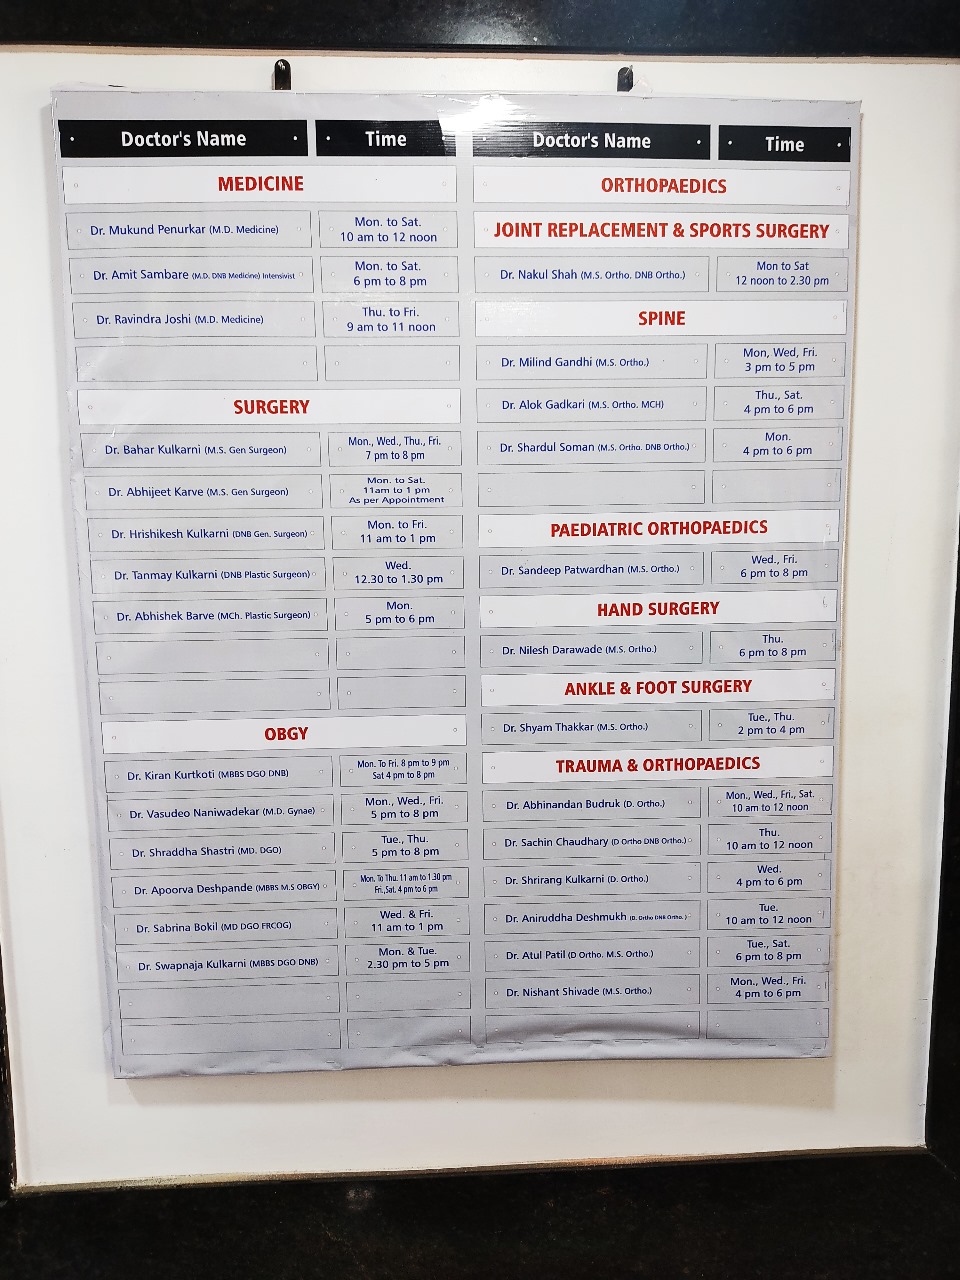 Doctor's Name Time
MEDICINE
Dr. Mukund Penurkar (M.D. Medicine) Mon. to Sat.
10 am to 12 noon
Dr. Amit Sambare (M.D. DNB Medicine) Intensivist Mon. to Sat.
6 pm to 8 pm
Dr. Ravindra Joshi (M.D. Medicine) Thu. to Fri.
9 am to 11 noon
SURGERY
Dr. Bahar Kulkarni (M.S. Gen Surgeon) Mon., Wed., Thu., Fri.
7 pm to 8 pm
Dr. Abhijeet Karve (M.S. Gen Surgeon) Mon. to Sat.
11am to 1 pm
As per Appointment
Dr. Hrishikesh Kulkarni (DNB Gen. Surgeon) Mon. to Fri.
11 am to 1 pm
Dr. Tanmay Kulkarni (DNB Plastic Surgeon) Wed.
12.30 to 1.30 pm
Dr. Abhishek Barve (MCh. Plastic Surgeon) Mon.
5 pm to 6 pm
OBGY
Dr. Kiran Kurtkoti (MBBS DGO DNB) Mon. To Fri. 8 pm to 9 pm
Sat 4 pm to 8 pm
Dr. Vasudeo Naniwadekar (M.D. Gynae) Mon., Wed., Fri.
5 pm to 8 pm
Dr. Shraddha Shastri (MD. DGO) Tue., Thu.
5 pm to 8 pm
Dr. Apoorva Deshpande (MBBS M.S OBGY) Mon. To Thu. 11 am to 1.30 pm
Fri.,Sat. 4 pm to 6 pm
Dr. Sabrina Bokil (MD DGO FRCOG) Wed. & Fri.
11 am to 1 pm
Dr. Swapnaja Kulkarni (MBBS DGO DNB) Mon. & Tue.
2.30 pm to 5 pm
Doctor's Name Time
ORTHOPAEDICS
JOINT REPLACEMENT & SPORTS SURGERY
Dr. Nakul Shah (M.S. Ortho. DNB Ortho.) Mon to Sat
12 noon to 2.30 pm
SPINE
Dr. Milind Gandhi (M.S. Ortho.) Mon, Wed, Fri.
3 pm to 5 pm
Dr. Alok Gadkari (M.S. Ortho. MCH) Thu., Sat.
4 pm to 6 pm
Dr. Shardul Soman (M.S. Ortho. DNB Ortho.) Mon.
4 pm to 6 pm
PAEDIATRIC ORTHOPAEDICS
Dr. Sandeep Patwardhan (M.S. Ortho.) Wed., Fri.
6 pm to 8 pm
HAND SURGERY
Dr. Nilesh Darawade (M.S. Ortho.) Thu.
6 pm to 8 pm
ANKLE & FOOT SURGERY
Dr. Shyam Thakkar (M.S. Ortho.) Tue., Thu.
2 pm to 4 pm
TRAUMA & ORTHOPAEDICS
Dr. Abhinandan Budruk (D. Ortho.) Mon., Wed., Fri., Sat.
10 am to 12 noon
Dr. Sachin Chaudhary (D Ortho DNB Ortho.) Thu.
10 am to 12 noon
Dr. Shrirang Kulkarni (D. Ortho.) Wed.
4 pm to 6 pm
Dr. Aniruddha Deshmukh (D. Ortho DNB Ortho.) Tue.
10 am to 12 noon
Dr. Atul Patil (D Ortho. M.S. Ortho.) Tue., Sat.
6 pm to 8 pm
Dr. Nishant Shivade (M.S. Ortho.) Mon., Wed., Fri.
4 pm to 6 pm